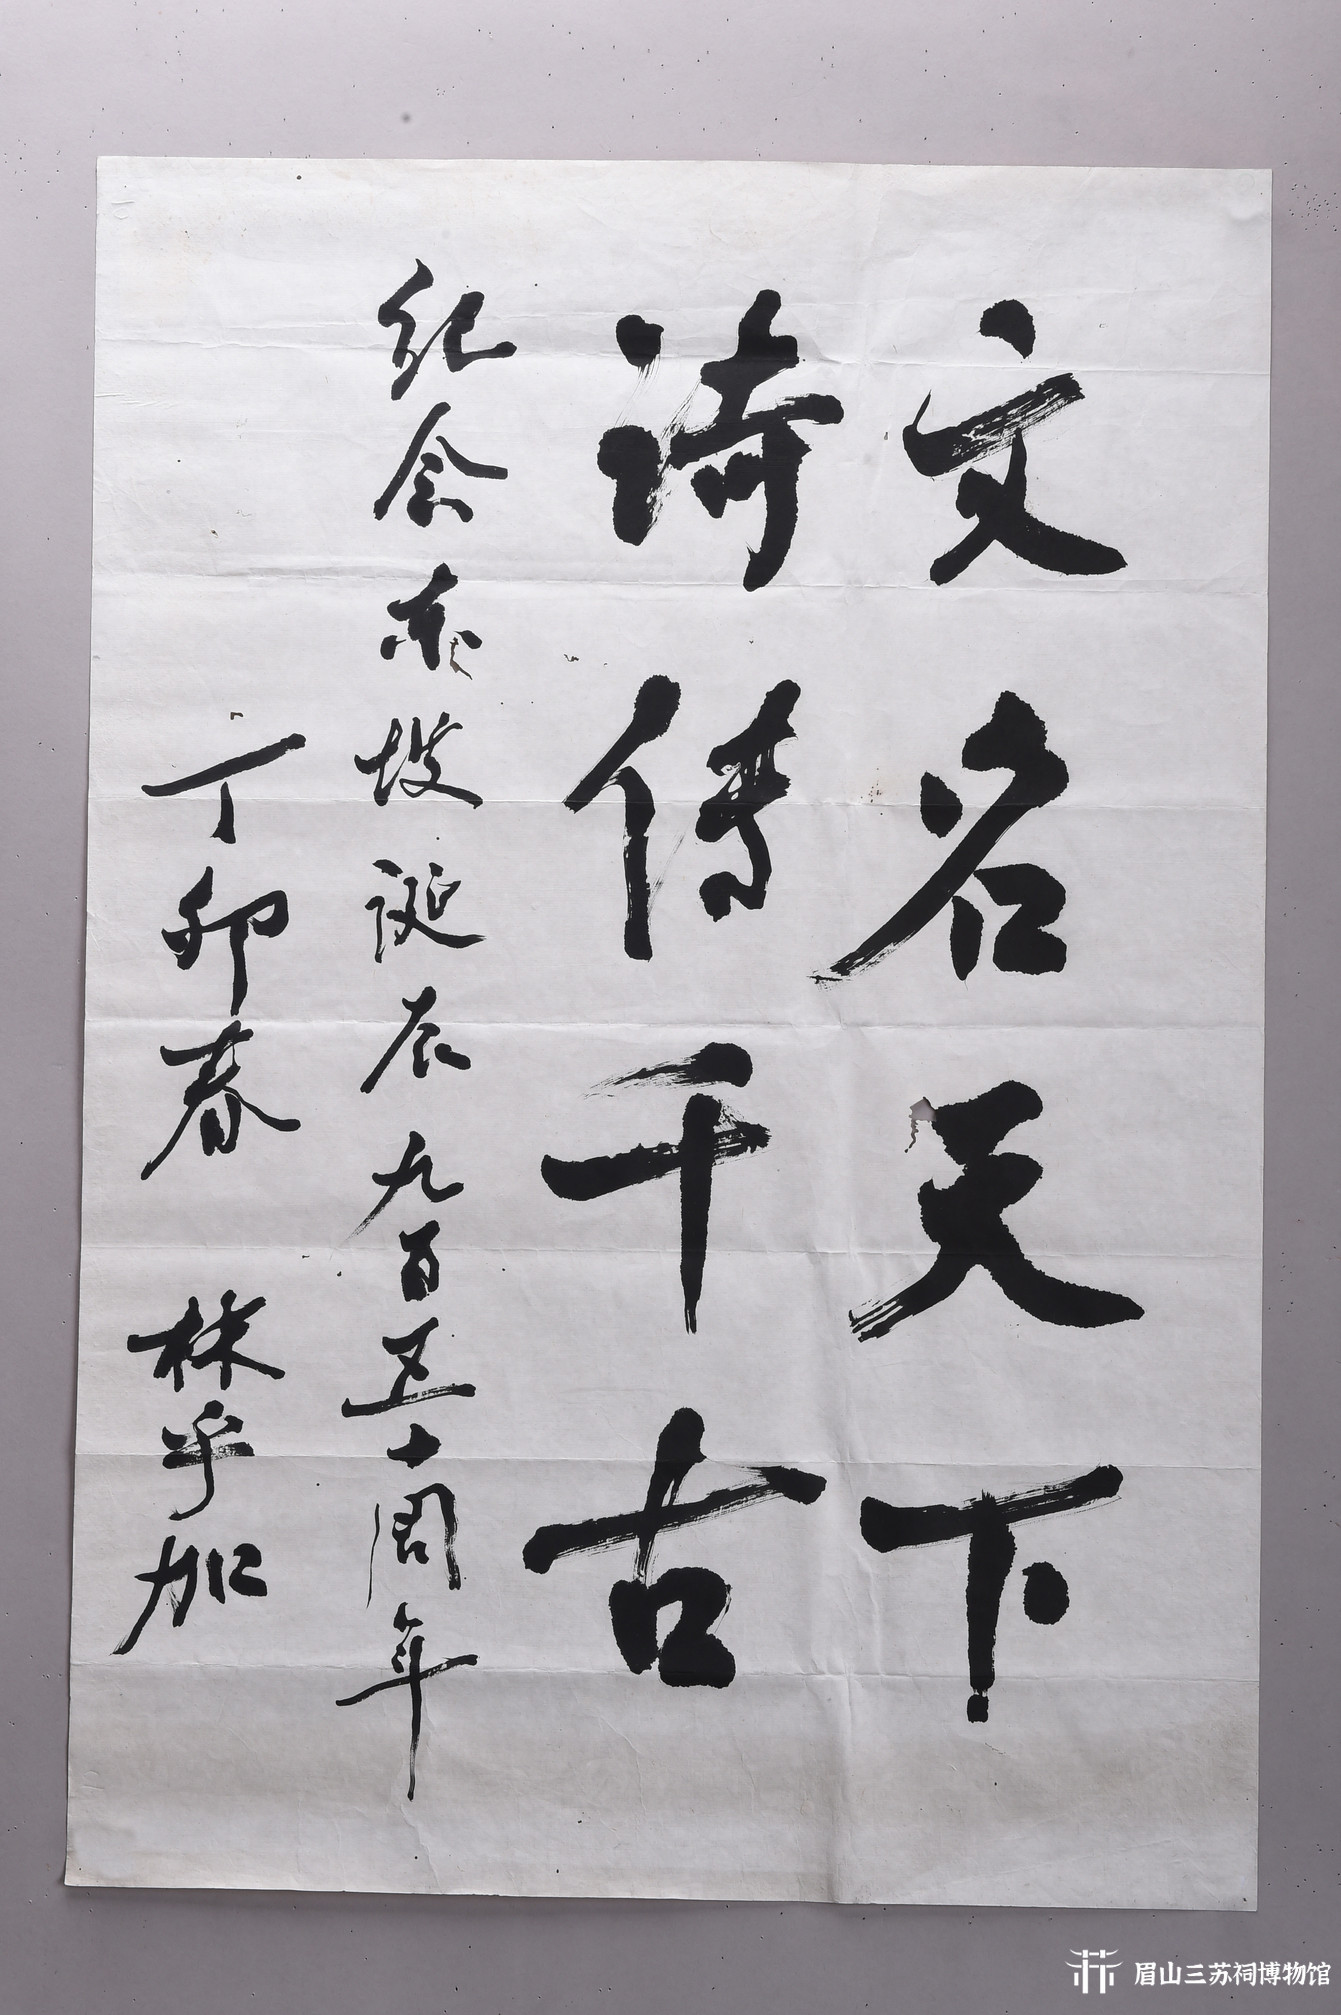 文名天下
诗传千古
纪念东坡诞辰九百五十周年
丁卯春 林乎加
眉山三苏祠博物馆